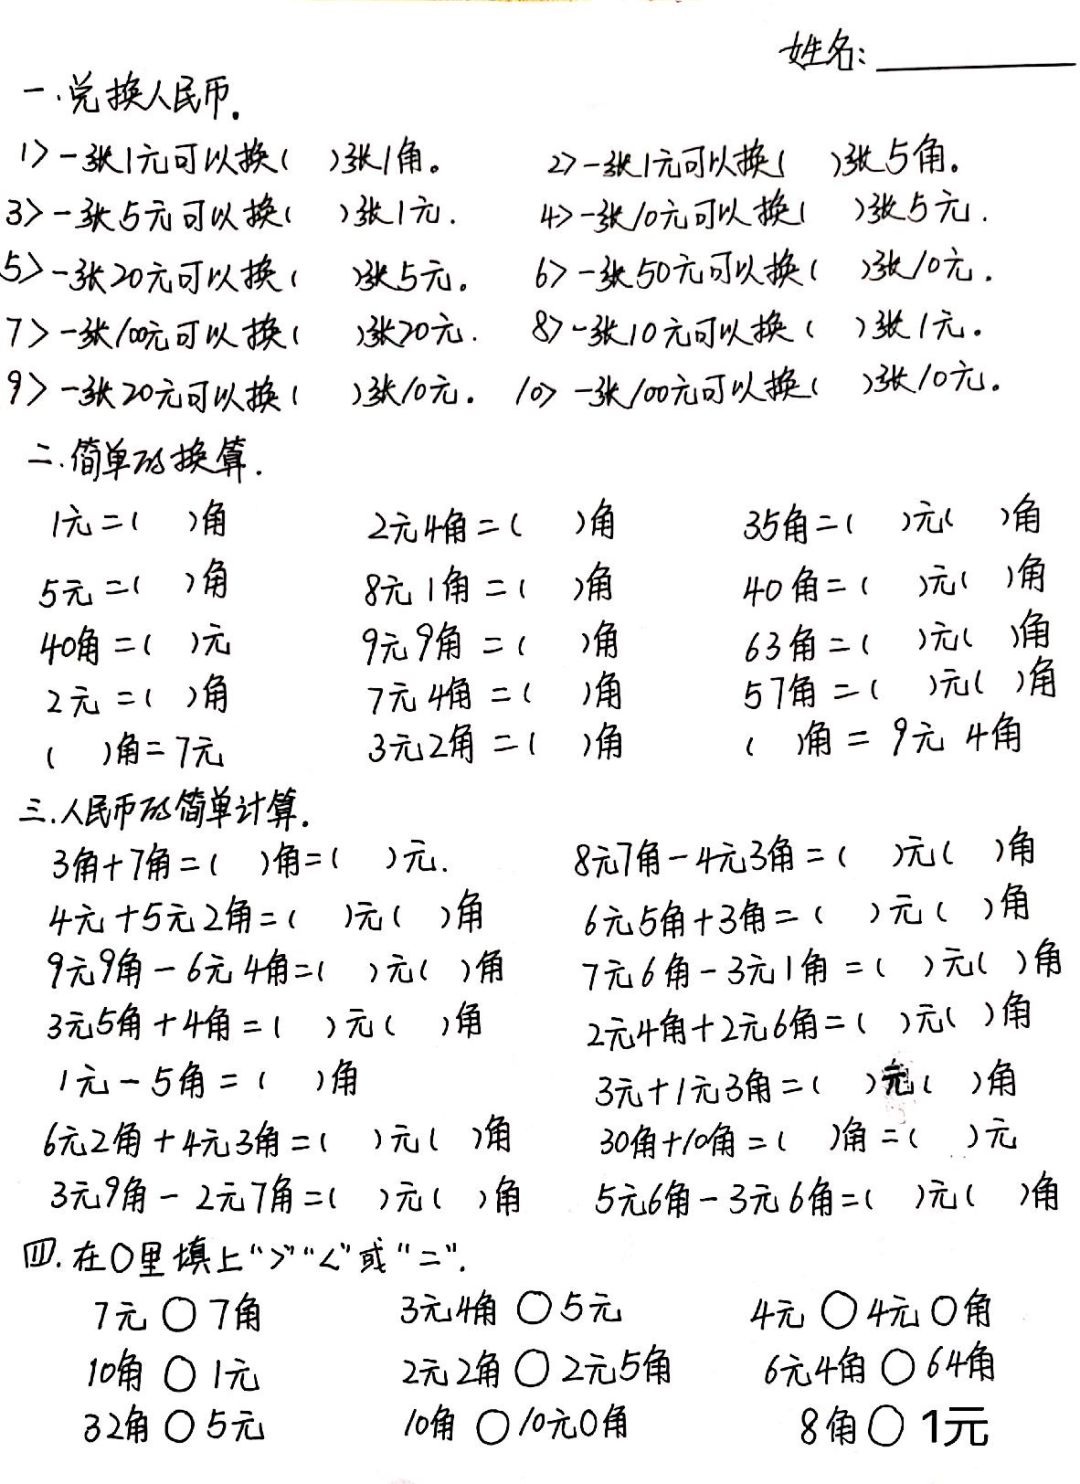 姓名:
一.兑换人民币.
1>一张1元可以换( )张1角。 2>一张1元可以换( )张5角。
3>一张5元可以换( )张1元. 4>一张10元可以换( )张5元.
5>一张20元可以换( )张5元。 6>一张50元可以换( )张10元.
7>一张100元可以换( )张20元. 8>一张10元可以换( )张1元.
9>一张20元可以换( )张10元. 10>一张100元可以换( )张10元.
二.简单的换算.
1元=( )角 2元4角=( )角 35角=( )元( )角
5元=( )角 8元1角=( )角 40角=( )元( )角
40角=( )元 9元9角=( )角 63角=( )元( )角
2元=( )角 7元4角=( )角 57角=( )元( )角
( )角=7元 3元2角=( )角 ( )角=9元4角
三.人民币的简单计算.
3角+7角=( )角=( )元. 8元7角-4元3角=( )元( )角
4元+5元2角=( )元( )角 6元5角+3角=( )元( )角
9元9角-6元4角=( )元( )角 7元6角-3元1角=( )元( )角
3元5角+4角=( )元( )角 2元4角+2元6角=( )元( )角
1元-5角=( )角 3元+1元3角=( )元( )角
6元2角+4元3角=( )元( )角 30角+10角=( )角=( )元
3元9角-2元7角=( )元( )角 5元6角-3元6角=( )元( )角
四.在○里填上">""<"或"=".
7元○7角 3元4角○5元 4元○4元0角
10角○1元 2元2角○2元5角 6元4角○64角
32角○5元 10角○10元0角 8角○1元